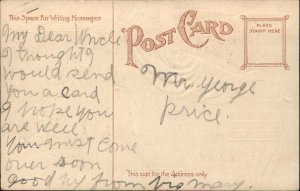 This Space For Writing Messages
POST CARD
PLACE
STAMP HERE
My Dear Uncle
I thought I
would send
you a card
I hope you
are well.
You must come
over soon
good by from
Mr George
Price.
This side for the Address only